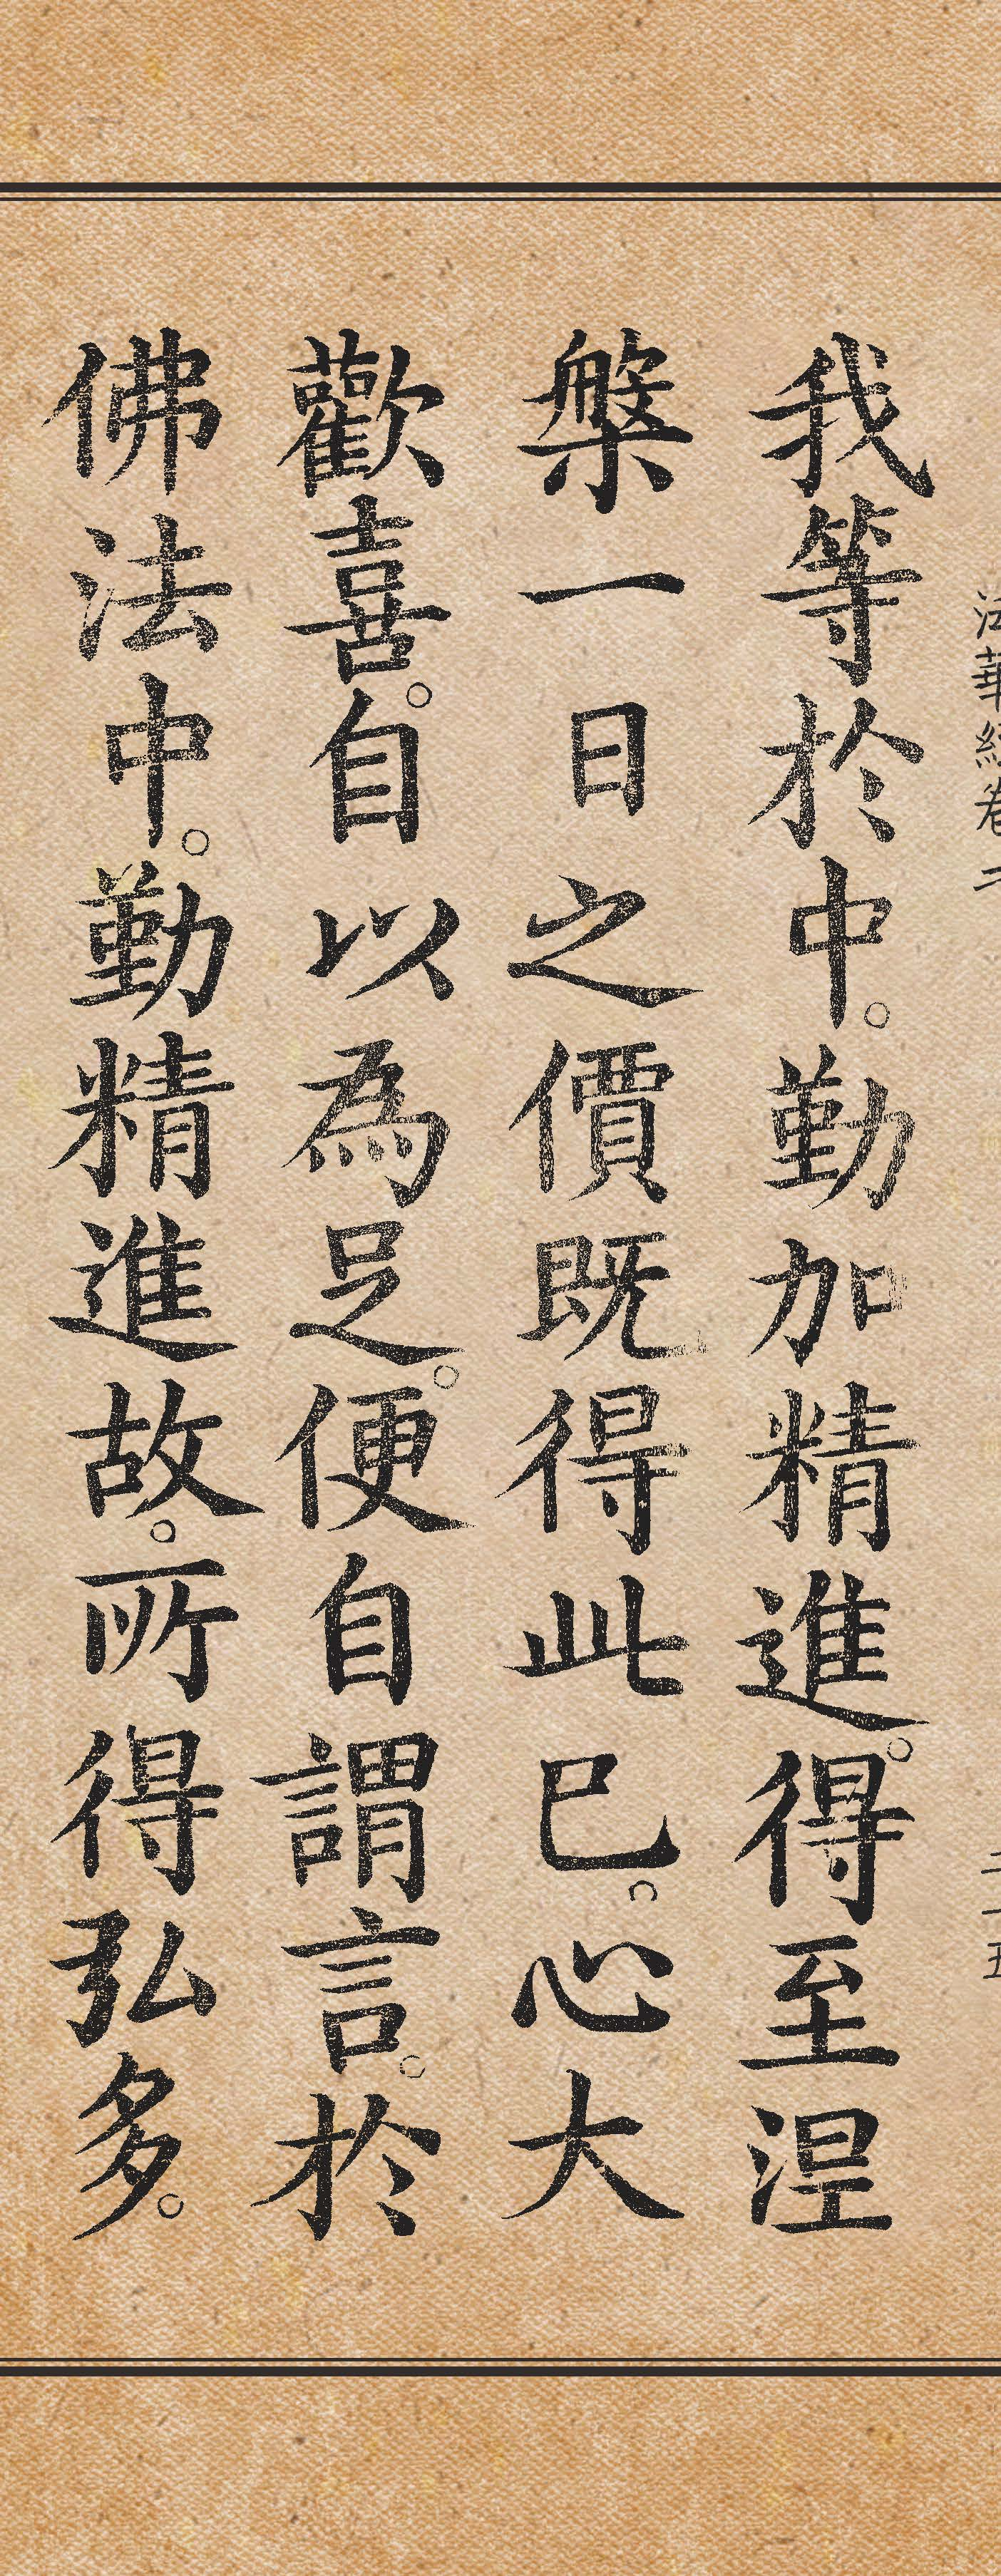 法華經卷二
我等於中。勤加精進。得至涅
槃一日之價既得此巳。心大
歡喜。自以為足。便自謂言。於
佛法中。勤精進故。所得弘多。